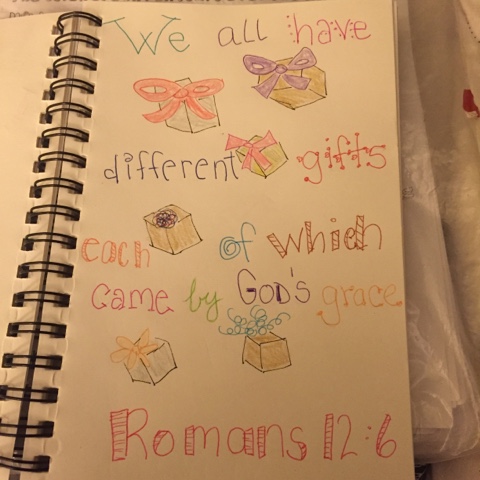 We all have
different gifts
each of which
came by God's grace
Romans 12:6